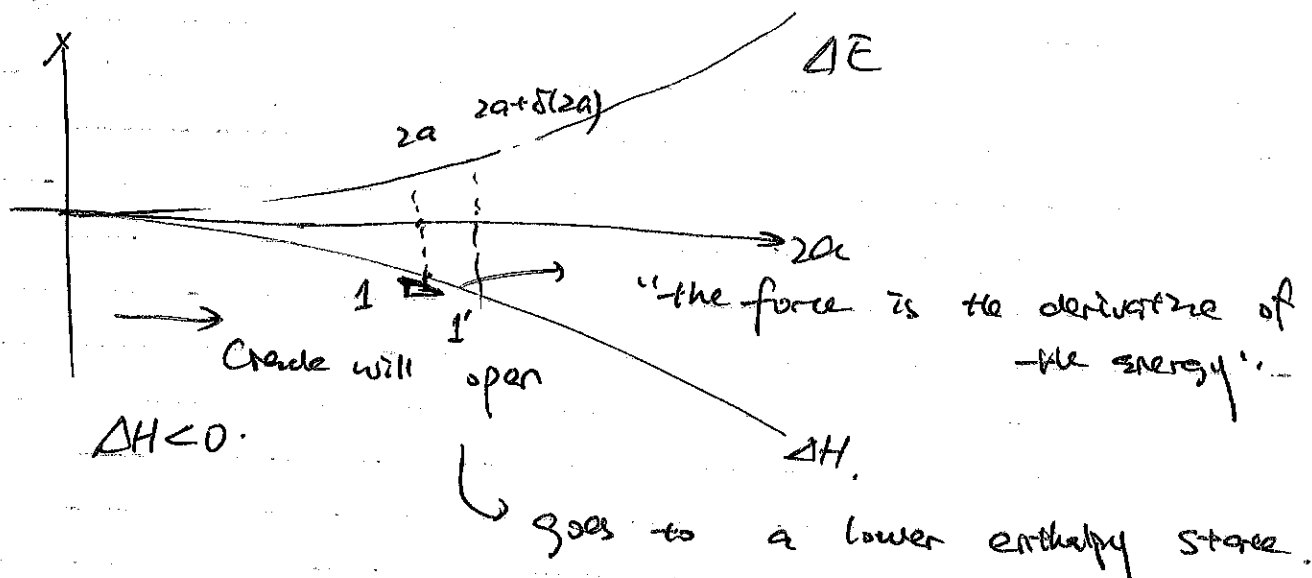 X
ΔE
2a
2a+δ(2a)
2a
1
1'
"the force is the derivative of
the energy"
Crack will open
ΔH<0.
ΔH.
goes to a lower enthalpy state.